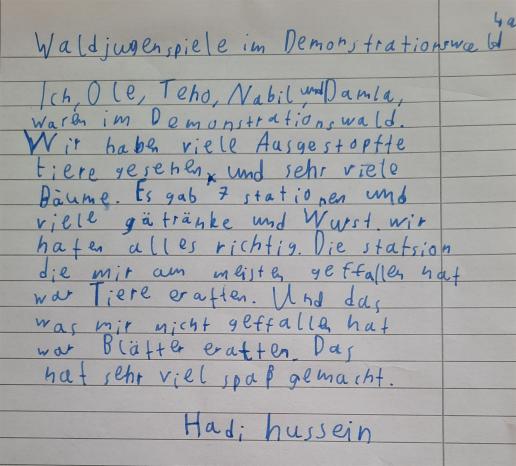 4a
Waldjugenspiele im Demonstrationswald
Ich, Ole, Teho, Nabil, und Damla,
waren im Demonstrationswald.
Wir haben viele Ausgestopfte
tiere gesehen, und sehr viele
Bäume. Es gab 7 stationen und
viele gätränke und Wurst. wir
haten alles richtig. Die statsion
die mir am meisten geffallen hat
war Tiere eraften. Und das
was mir nicht geffallen hat
war Blätter eratten. Das
hat sehr viel spaß gemacht.
Hadi hussein